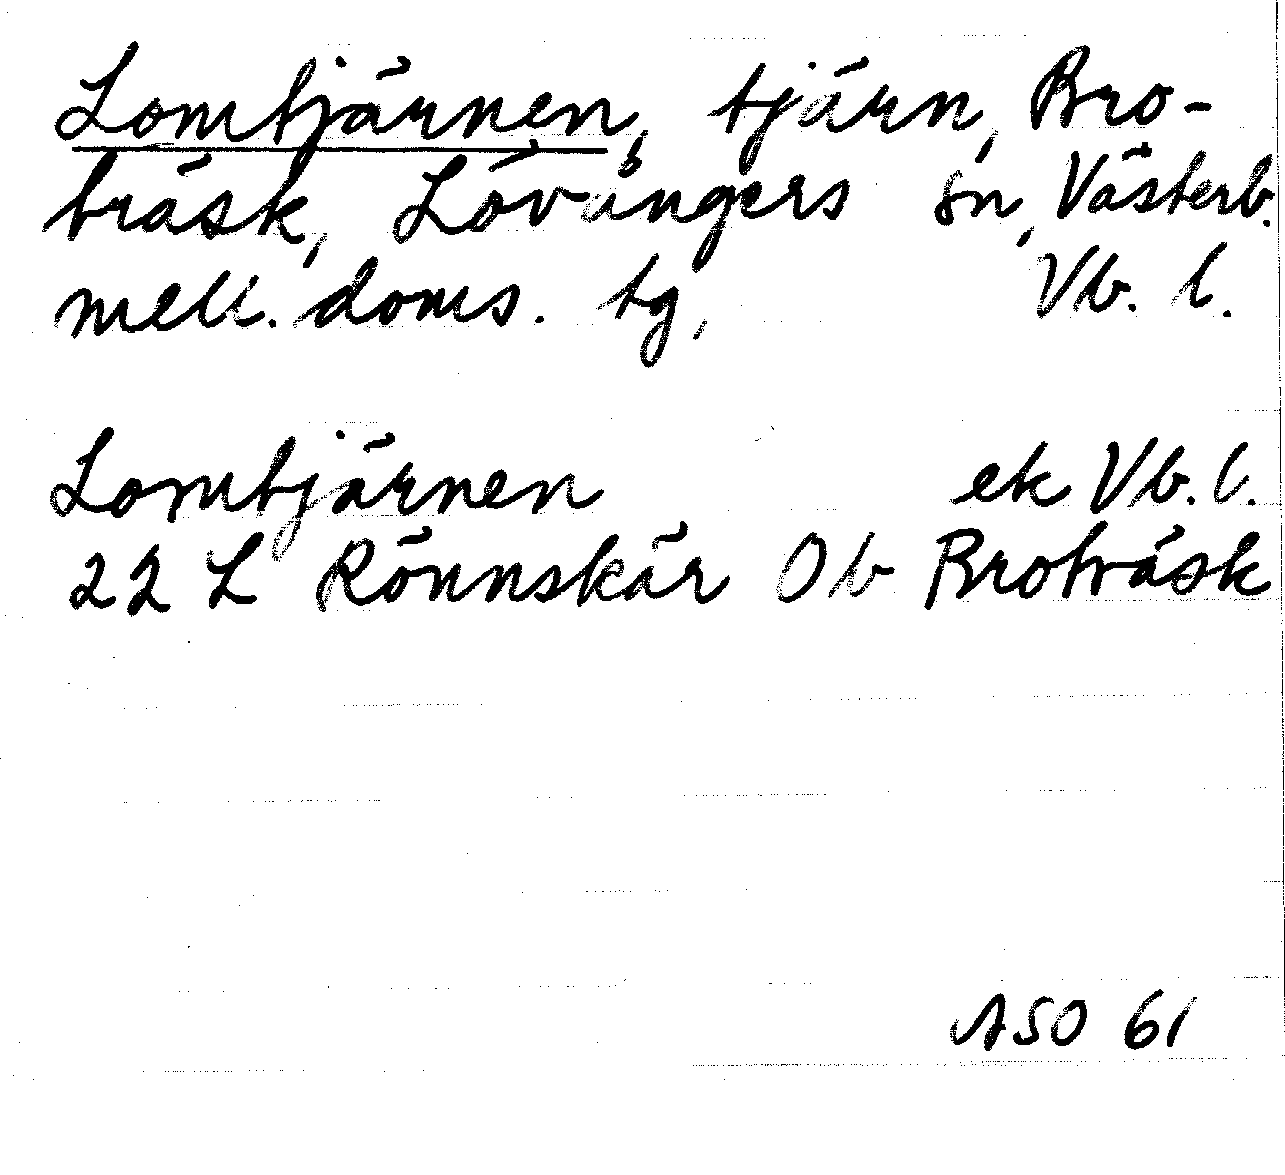 Lomtjärnen, tjärn, Bro-
träsk, Lövångers sn, Västerb.
mell. doms. tg, Vb. l.
Lomtjärnen ek Vb. l.
22 L Rönnskär Ob Broträsk
ASO 61